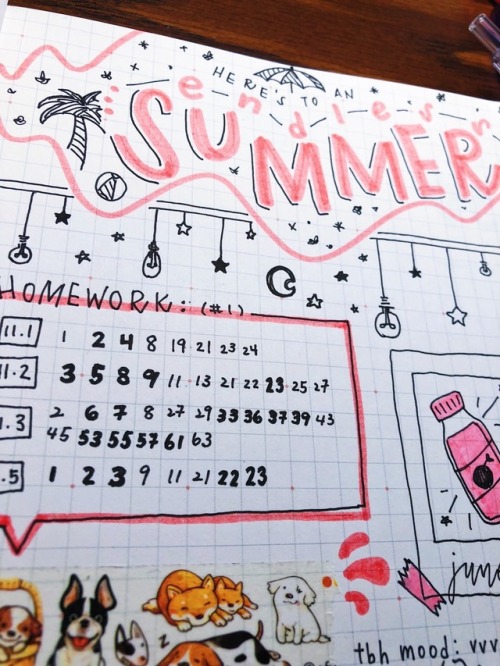 HERE'S TO AN
endless
SUMMER
HOMEWORK: (#1)
11.1 1 2 4 8 19 21 23 24
11.2 3 5 8 9 11 13 21 22 23 25 27
1.3 2 6 7 8 27 29 33 36 37 39 43
45 53 55 57 61 63
.5 1 2 3 9 11 21 22 23
z
june
tbh mood: vvv